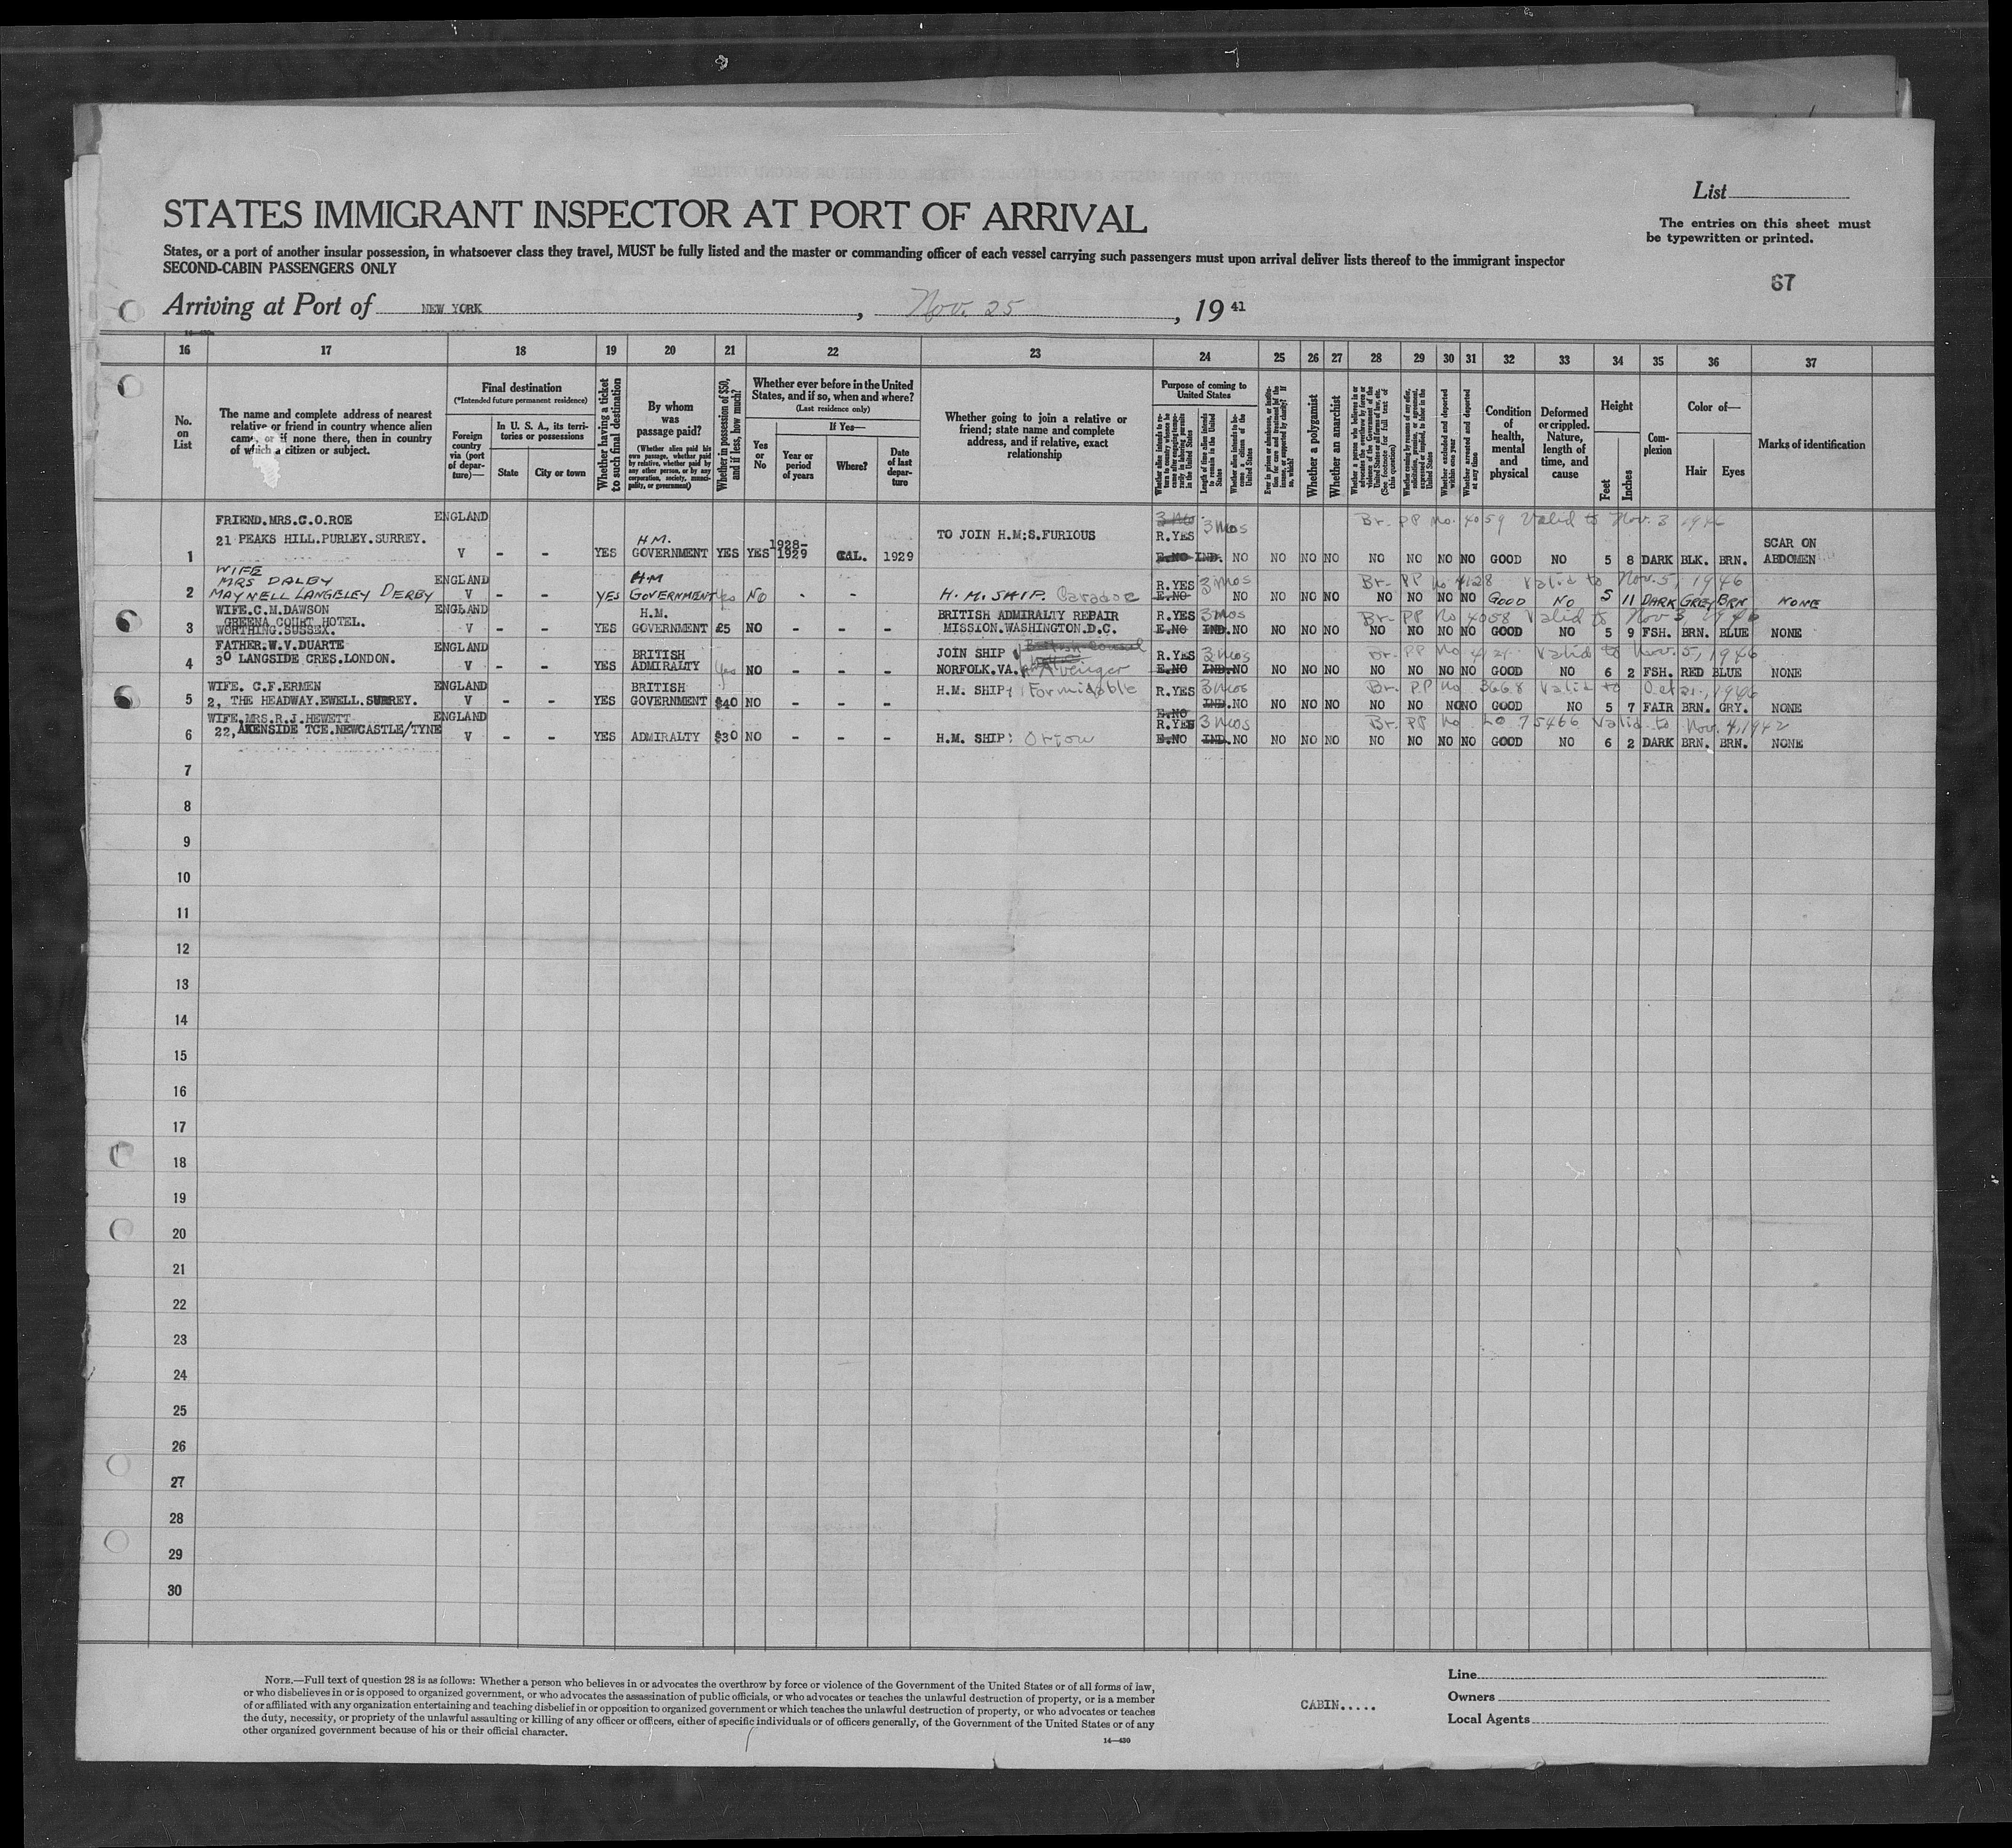 List
STATES IMMIGRANT INSPECTOR AT PORT OF ARRIVAL
The entries on this sheet must
be typewritten or printed.
States, or a port of another insular possession, in whatsoever class they travel, MUST be fully listed and the master or commanding officer of each vessel carrying such passengers must upon arrival deliver lists thereof to the immigrant inspector
SECOND-CABIN PASSENGERS ONLY
67
Arriving at Port of NEW YORK, Nov. 25, 19 41
16 17 18 19 20 21 22 23 24 25 26 27 28 29 30 31 32 33 34 35 36 37
No. on List
The name and complete address of nearest
relative or friend in country whence alien
came, or if none there, then in country
of which a citizen or subject.
Final destination
(*Intended future permanent residence)
Foreign country via (port of departure)—
In U. S. A., its territories or possessions
State
City or town
Whether having a ticket to such final destination
By whom was passage paid?
(Whether alien paid his own passage, whether paid by relative, whether paid by any other person, or by any corporation, society, municipality, or government)
Whether in possession of $50, and if less, how much?
Whether ever before in the United States, and if so, when and where?
(Last residence only)
Yes or No
If Yes—
Year or period of years
Where?
Date of last departure
Whether going to join a relative or
friend; state name and complete
address, and if relative, exact
relationship
Purpose of coming to United States
Length of time alien intends to remain in the United States
Whether alien intends to become a citizen of the United States
Whether a polygamist
Whether an anarchist
Whether excluded and deported within one year
Whether arrested and deported at any time
Condition of health, mental and physical
Deformed or crippled. Nature, length of time, and cause
Height
Feet
Inches
Complexion
Color of—
Hair
Eyes
Marks of identification
FRIEND.MRS.C.O.ROE ENGLAND TO JOIN H.M:S.FURIOUS 3 Mo 3 Mos Br. PP No. 4059 Valid to Nov. 3 1946
21 PEAKS HILL.PURLEY.SURREY. H.M. 1928- R.YES SCAR ON
1 V - - YES GOVERNMENT YES YES 1929 CAL. 1929 E.NO IND. NO NO NO NO NO NO NO NO GOOD NO 5 8 DARK BLK. BRN. ABDOMEN
WIFE
MRS DALBY ENGLAND H.M R.YES 3 Mos Br. PP No 4128 Valid to Nov. 5, 1946
2 MAYNELL LANGELEY DERBY V - - YES GOVERNMENT Yes NO - - H.M. SHIP. Caradoc E.NO NO NO NO NO NO NO NO NO GOOD NO 5 11 DARK GREY BRN NONE
WIFE.C.M.DAWSON ENGLAND H.M. BRITISH ADMIRALTY REPAIR R.YES 3 mos Br- PP No 4058 Valid to Nov 3 1946
GREENA COURT HOTEL.
3 WORTHING.SUSSEX. V - - YES GOVERNMENT £5 NO - - - MISSION.WASHINGTON.D.C. E.NO IND.NO NO NO NO NO NO NO NO GOOD NO 5 9 FSH. BRN. BLUE NONE
FATHER.W.V.DUARTE ENGLAND BRITISH JOIN SHIP British Consul R.YES 3 mos Br. PP No Valid to Nov. 5, 1946
4 30 LANGSIDE CRES.LONDON. V - - YES ADMIRALTY Yes NO - - - NORFOLK.VA. Avenger E.NO IND.NO NO NO NO NO NO NO NO GOOD NO 6 2 FSH. RED BLUE NONE
WIFE. C.F.ERMEN ENGLAND BRITISH H.M. SHIP: Formidable R.YES 3 mos Br. PP No 3668 Valid to Oct 21, 1946
5 2, THE HEADWAY.EWELL.SURREY. V - - YES GOVERNMENT $40 NO - - - E.NO IND.NO NO NO NO NO NO NO NO GOOD NO 5 7 FAIR BRN. GRY. NONE
WIFE.MRS.R.J.HEWETT ENGLAND R.YES 3 mos Br. PP No LO 75466 Valid to Nov. 4, 1942
6 22,AKENSIDE TCE.NEWCASTLE/TYNE V - - YES ADMIRALTY $30 NO - - - H.M. SHIP: Ortow E.NO IND.NO NO NO NO NO NO NO NO GOOD NO 6 2 DARK BRN. BRN. NONE
7
8
9
10
11
12
13
14
15
16
17
18
19
20
21
22
23
24
25
26
27
28
29
30
NOTE.—Full text of question 28 is as follows: Whether a person who believes in or advocates the overthrow by force or violence of the Government of the United States or of all forms of law,
or who disbelieves in or is opposed to organized government, or who advocates the assassination of public officials, or who advocates or teaches the unlawful destruction of property, or is a member
of or affiliated with any organization entertaining and teaching disbelief in or opposition to organized government or which teaches the unlawful destruction of property, or who advocates or teaches
the duty, necessity, or propriety of the unlawful assaulting or killing of any officer or officers, either of specific individuals or of officers generally, of the Government of the United States or of any
other organized government because of his or their official character.
14—430
CABIN.....
Line
Owners
Local Agents